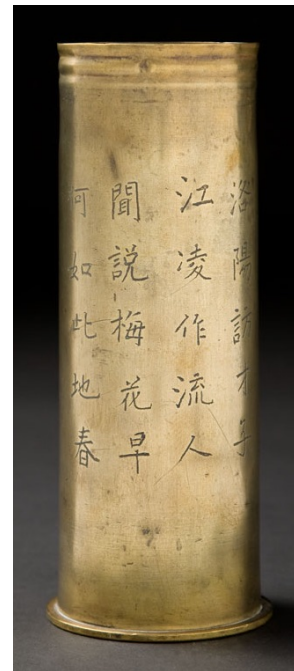 洛陽訪才子
江凌作流人
聞説梅花早
何如此地春